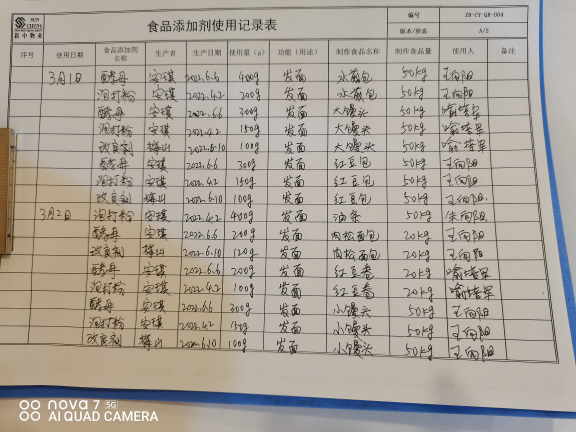 SUN CHUNG
新中物业
食品添加剂使用记录表
编号 ZH-CY-QR-004
版本/状态 A/2
序号 使用日期 食品添加剂名称 生产者 生产日期 使用量(g) 功能(用途) 制作食品名称 制作食品量 使用人 备注
3月1日 酵母 安琪 2022.6.6 400g 发面 水煎包 50kg 王向阳
泡打粉 安琪 2022.4.2 200g 发面 水煎包 50kg 王向阳
酵母 安琪 2022.6.6 300g 发面 大馒头 50kg
泡打粉 安琪 2022.4.2 150g 发面 大馒头 50kg
改良剂 梅山 2022.6.10 100g 发面 大馒头 50kg
酵母 安琪 2022.6.6 300g 发面 红豆包 50kg 王向阳
泡打粉 安琪 2022.4.2 150g 发面 红豆包 50kg 王向阳
改良剂 梅山 2022.6.10 100g 发面 红豆包 50kg 王向阳
3月2日 泡打粉 安琪 2022.4.2 400g 发面 油条 50kg 朱向阳
酵母 安琪 2022.6.6 200g 发面 肉松面包 20kg 王向阳
改良剂 梅山 2022.6.10 120g 发面 肉松面包 20kg 王向阳
酵母 安琪 2022.6.6 200g 发面 红豆卷 20kg
泡打粉 安琪 2022.4.2 100g 发面 红豆卷 20kg
酵母 安琪 2022.6.6 300g 发面 小馒头 50kg 王向阳
泡打粉 安琪 2022.4.2 150g 发面 小馒头 50kg 王向阳
改良剂 梅山 2022.6.10 100g 发面 小馒头 50kg 王向阳
nova 7 5G
AI QUAD CAMERA